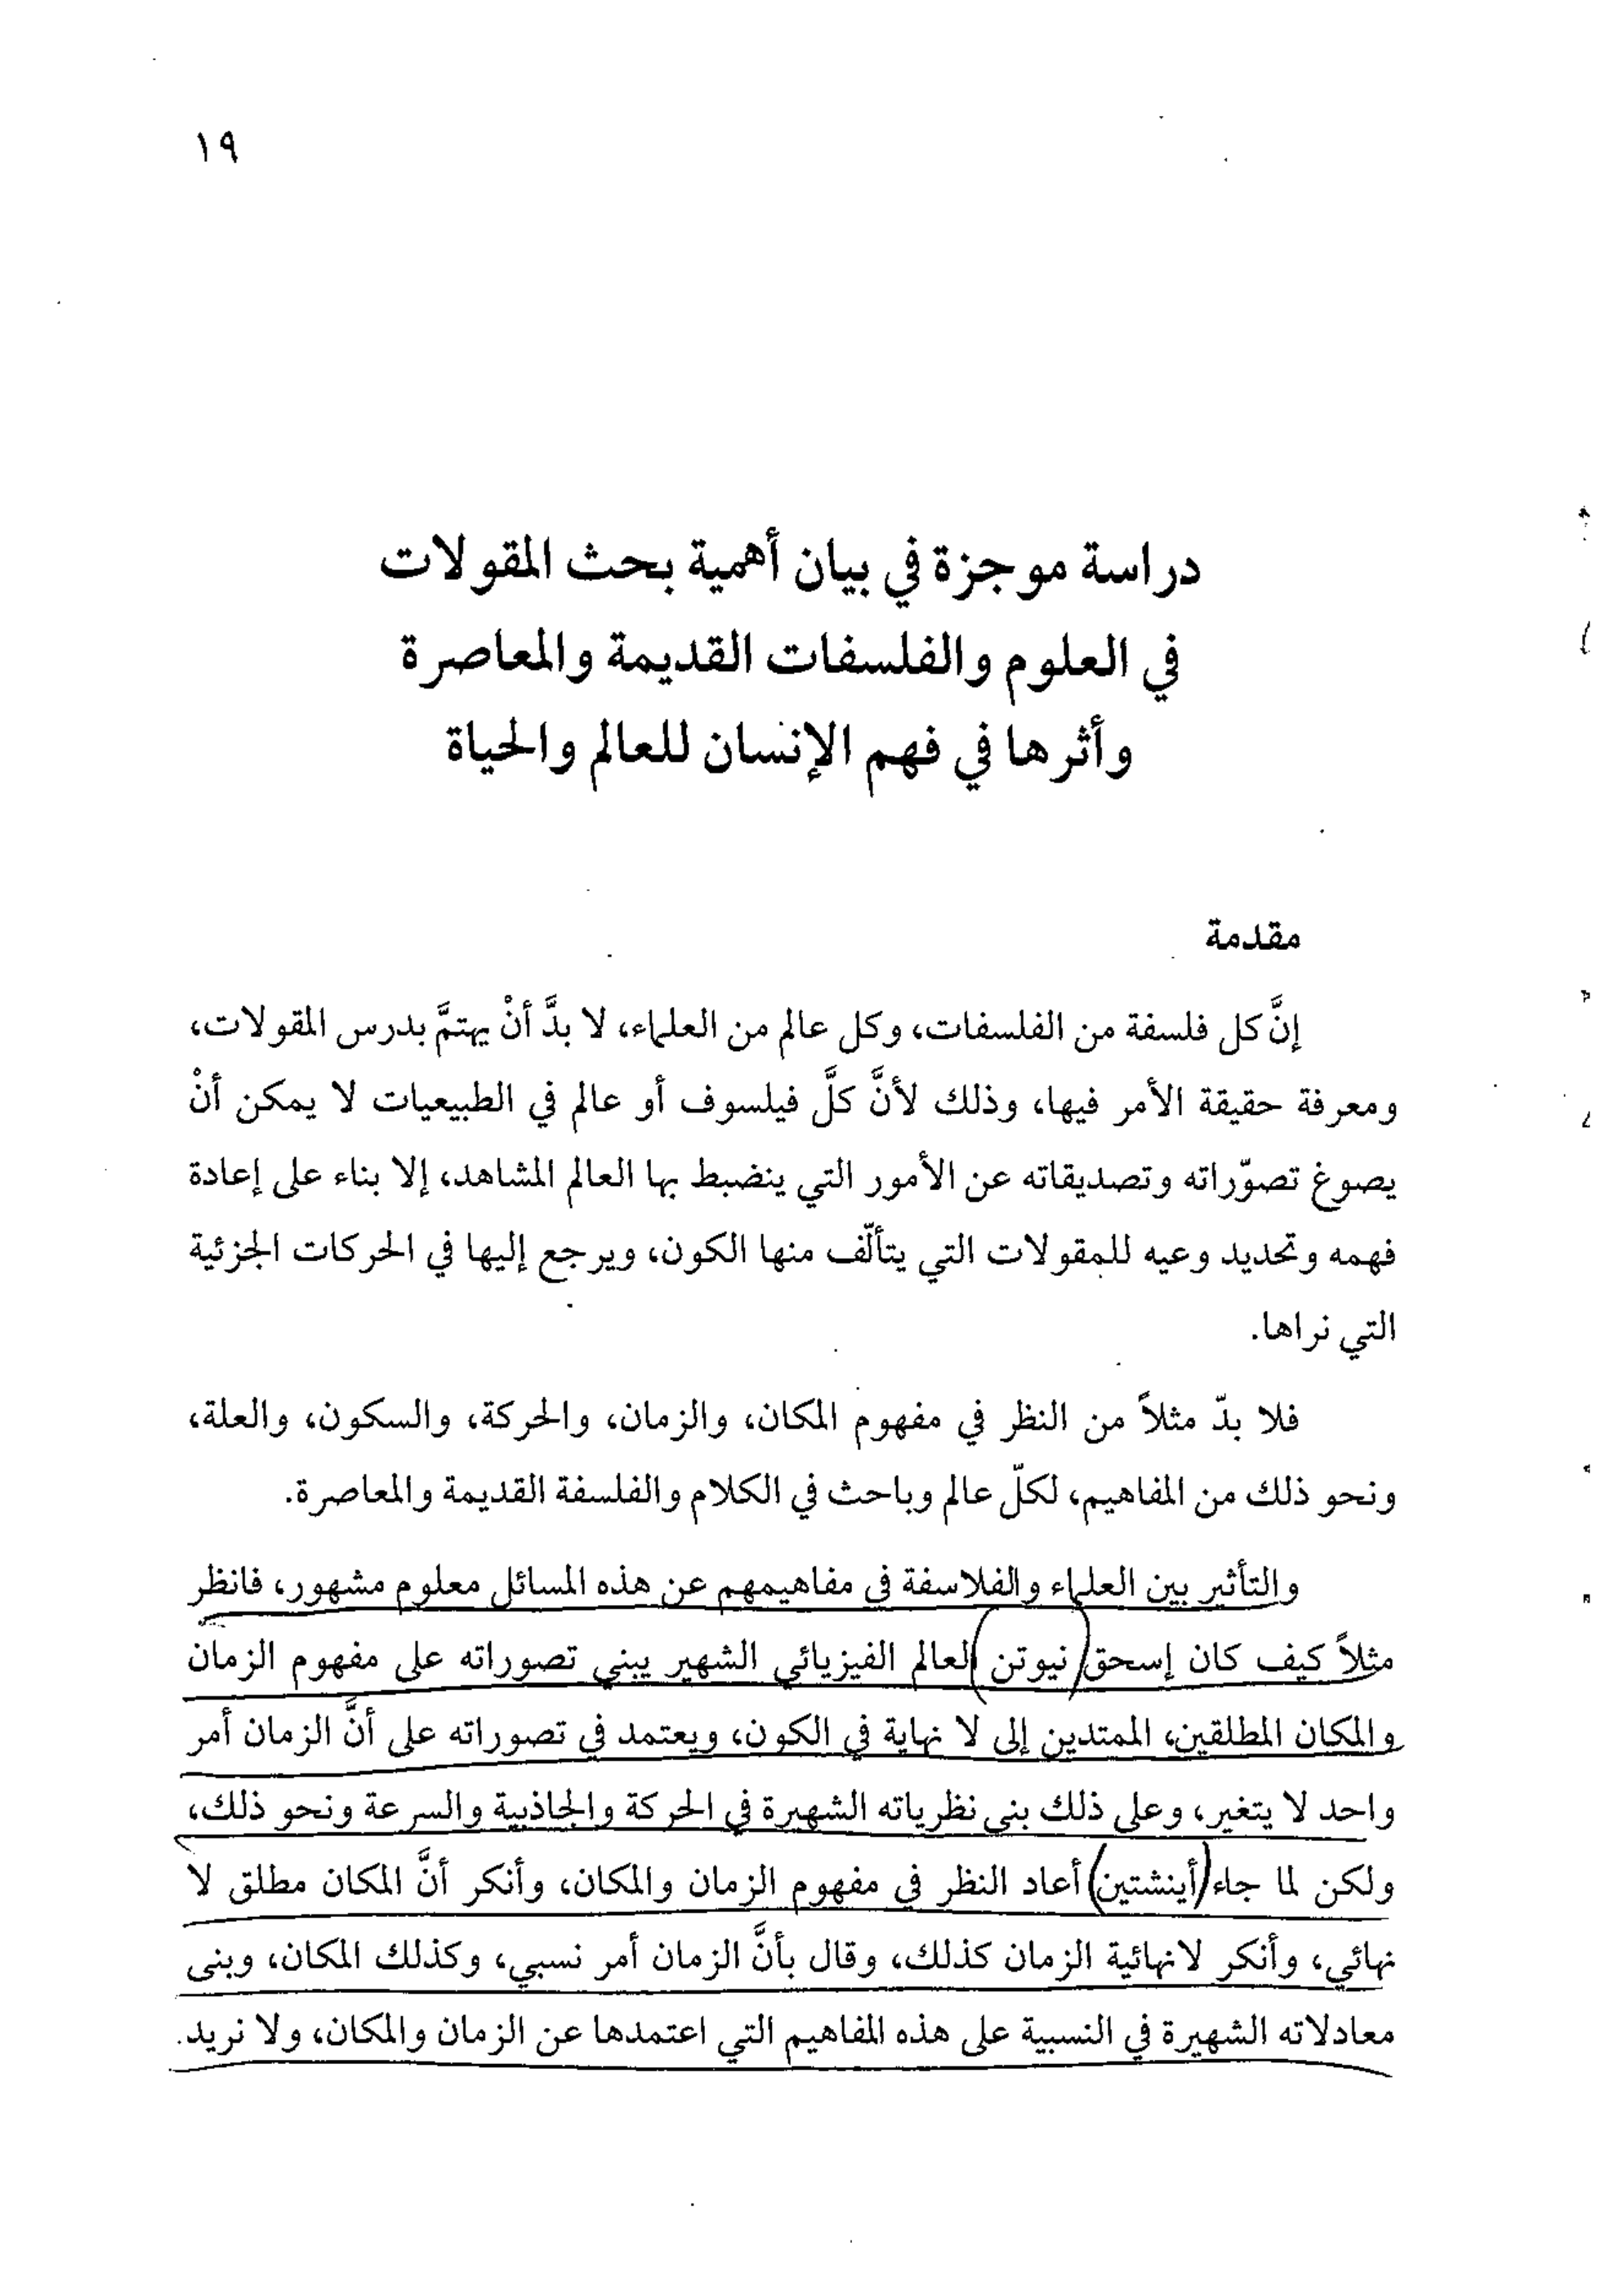 ١٩
دراسة موجزة في بيان أهمية بحث المقولات
في العلوم والفلسفات القديمة والمعاصرة
وأثرها في فهم الإنسان للعالم والحياة
مقدمة
إنَّ كل فلسفة من الفلسفات، وكل عالم من العلماء، لا بدَّ أنْ يهتمَّ بدرس المقولات،
ومعرفة حقيقة الأمر فيها، وذلك لأنَّ كلَّ فيلسوف أو عالم في الطبيعيات لا يمكن أنْ
يصوغ تصوّراته وتصديقاته عن الأمور التي ينضبط بها العالم المشاهد، إلا بناء على إعادة
فهمه وتحديد وعيه للمقولات التي يتألّف منها الكون، ويرجع إليها في الحركات الجزئية
التي نراها.
فلا بدّ مثلاً من النظر في مفهوم المكان، والزمان، والحركة، والسكون، والعلة،
ونحو ذلك من المفاهيم، لكلّ عالم وباحث في الكلام والفلسفة القديمة والمعاصرة.
والتأثير بين العلماء والفلاسفة في مفاهيمهم عن هذه المسائل معلوم مشهور، فانظر
مثلاً كيف كان إسحق (نيوتن) العالم الفيزيائي الشهير يبني تصوراته على مفهوم الزمان
والمكان المطلقين، الممتدين إلى لا نهاية في الكون، ويعتمد في تصوراته على أنَّ الزمان أمر
واحد لا يتغير، وعلى ذلك بنى نظرياته الشهيرة في الحركة والجاذبية والسرعة ونحو ذلك،
ولكن لما جاء (أينشتين) أعاد النظر في مفهوم الزمان والمكان، وأنكر أنَّ المكان مطلق لا
نهائي، وأنكر لانهائية الزمان كذلك، وقال بأنَّ الزمان أمر نسبي، وكذلك المكان، وبنى
معادلاته الشهيرة في النسبية على هذه المفاهيم التي اعتمدها عن الزمان والمكان، ولا نريد